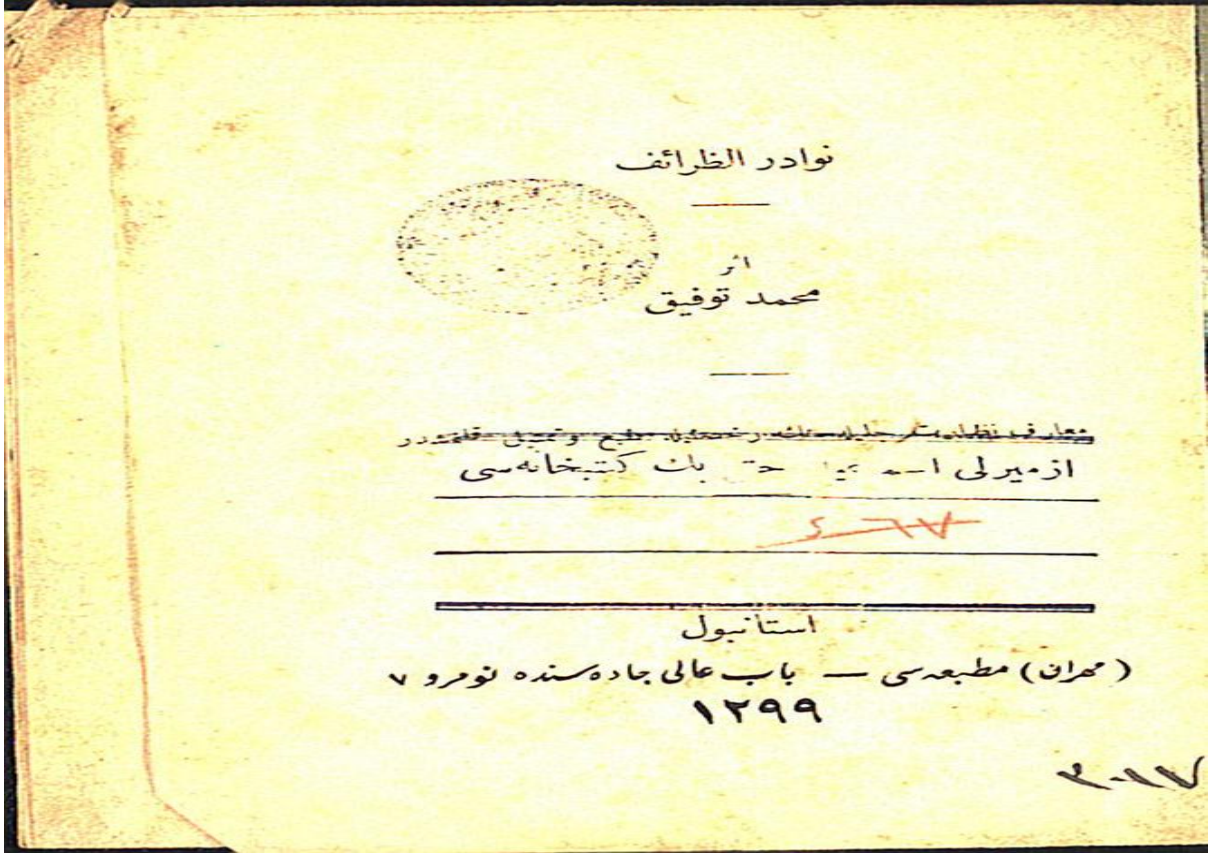 نوادر الظرائف
اثر
محمد توفيق
معارف نظارت جليله سنك رخصتيله طبع وتمثيل قلنمشدر
ازميرلى حقى بك كتبخانه‌سى
٤٠٦٧
استانبول
(مهران) مطبعه‌سى — باب عالى جاده‌سنده نومرو ٧
١٢٩٩
٣٠١٧